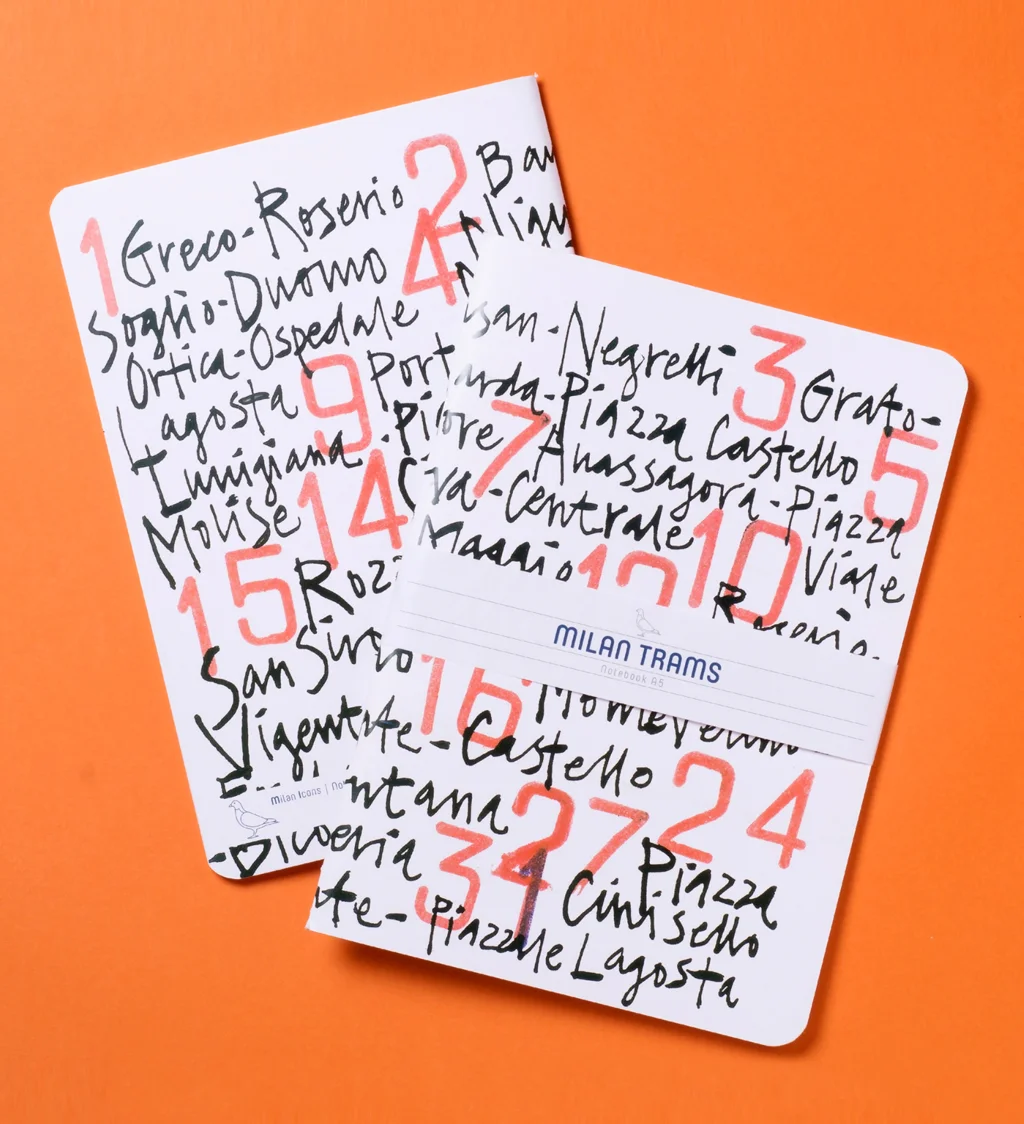 1 Greco-Roserio 2 Ban
Soglio-Duomo 4 Nigu
Ortica-Ospedale
Lagosta 9 Port
Lunigiana-Piore
Molise 14
15 Roz
San Siro
Vigent
Milan Icons
-Bicocca
Negrelli 3 Grato-
arda-Piazza Castello 5
7 Anassagora-Piazza
iva-Centrale 10 Viale
Maggio
MILAN TRAMS
Notebook A5
16 Monteverdi
te-Castello 24
ntana 27 Piazza
31 Cinisello
te-Piazzale Lagosta